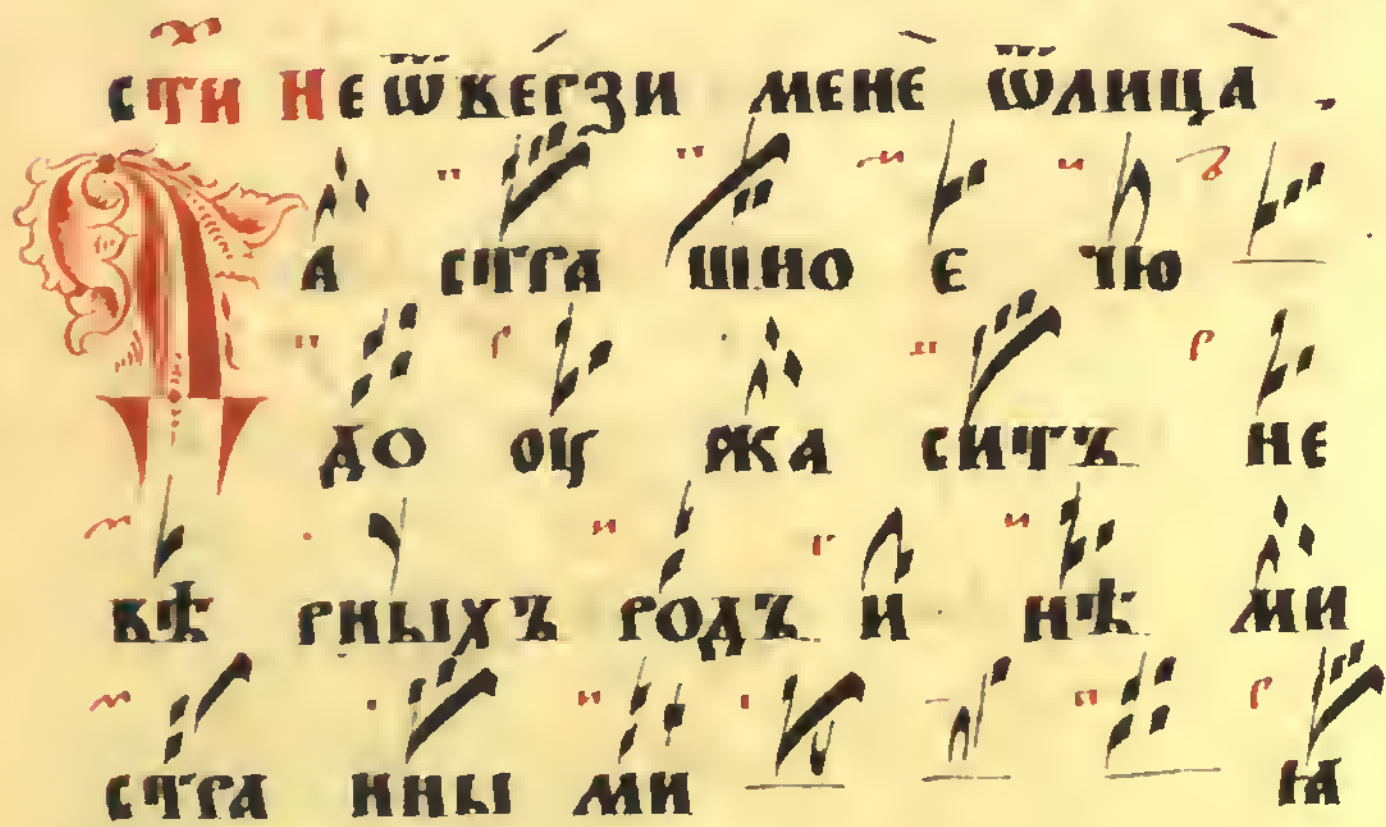 стиⷯ не ѿверзи менѐ ѿлица̀
Да стра шно е чю
до оу жа ситъ не
вѣ рныхъ родъ и нѣ ми
стра нны ми ꙗ